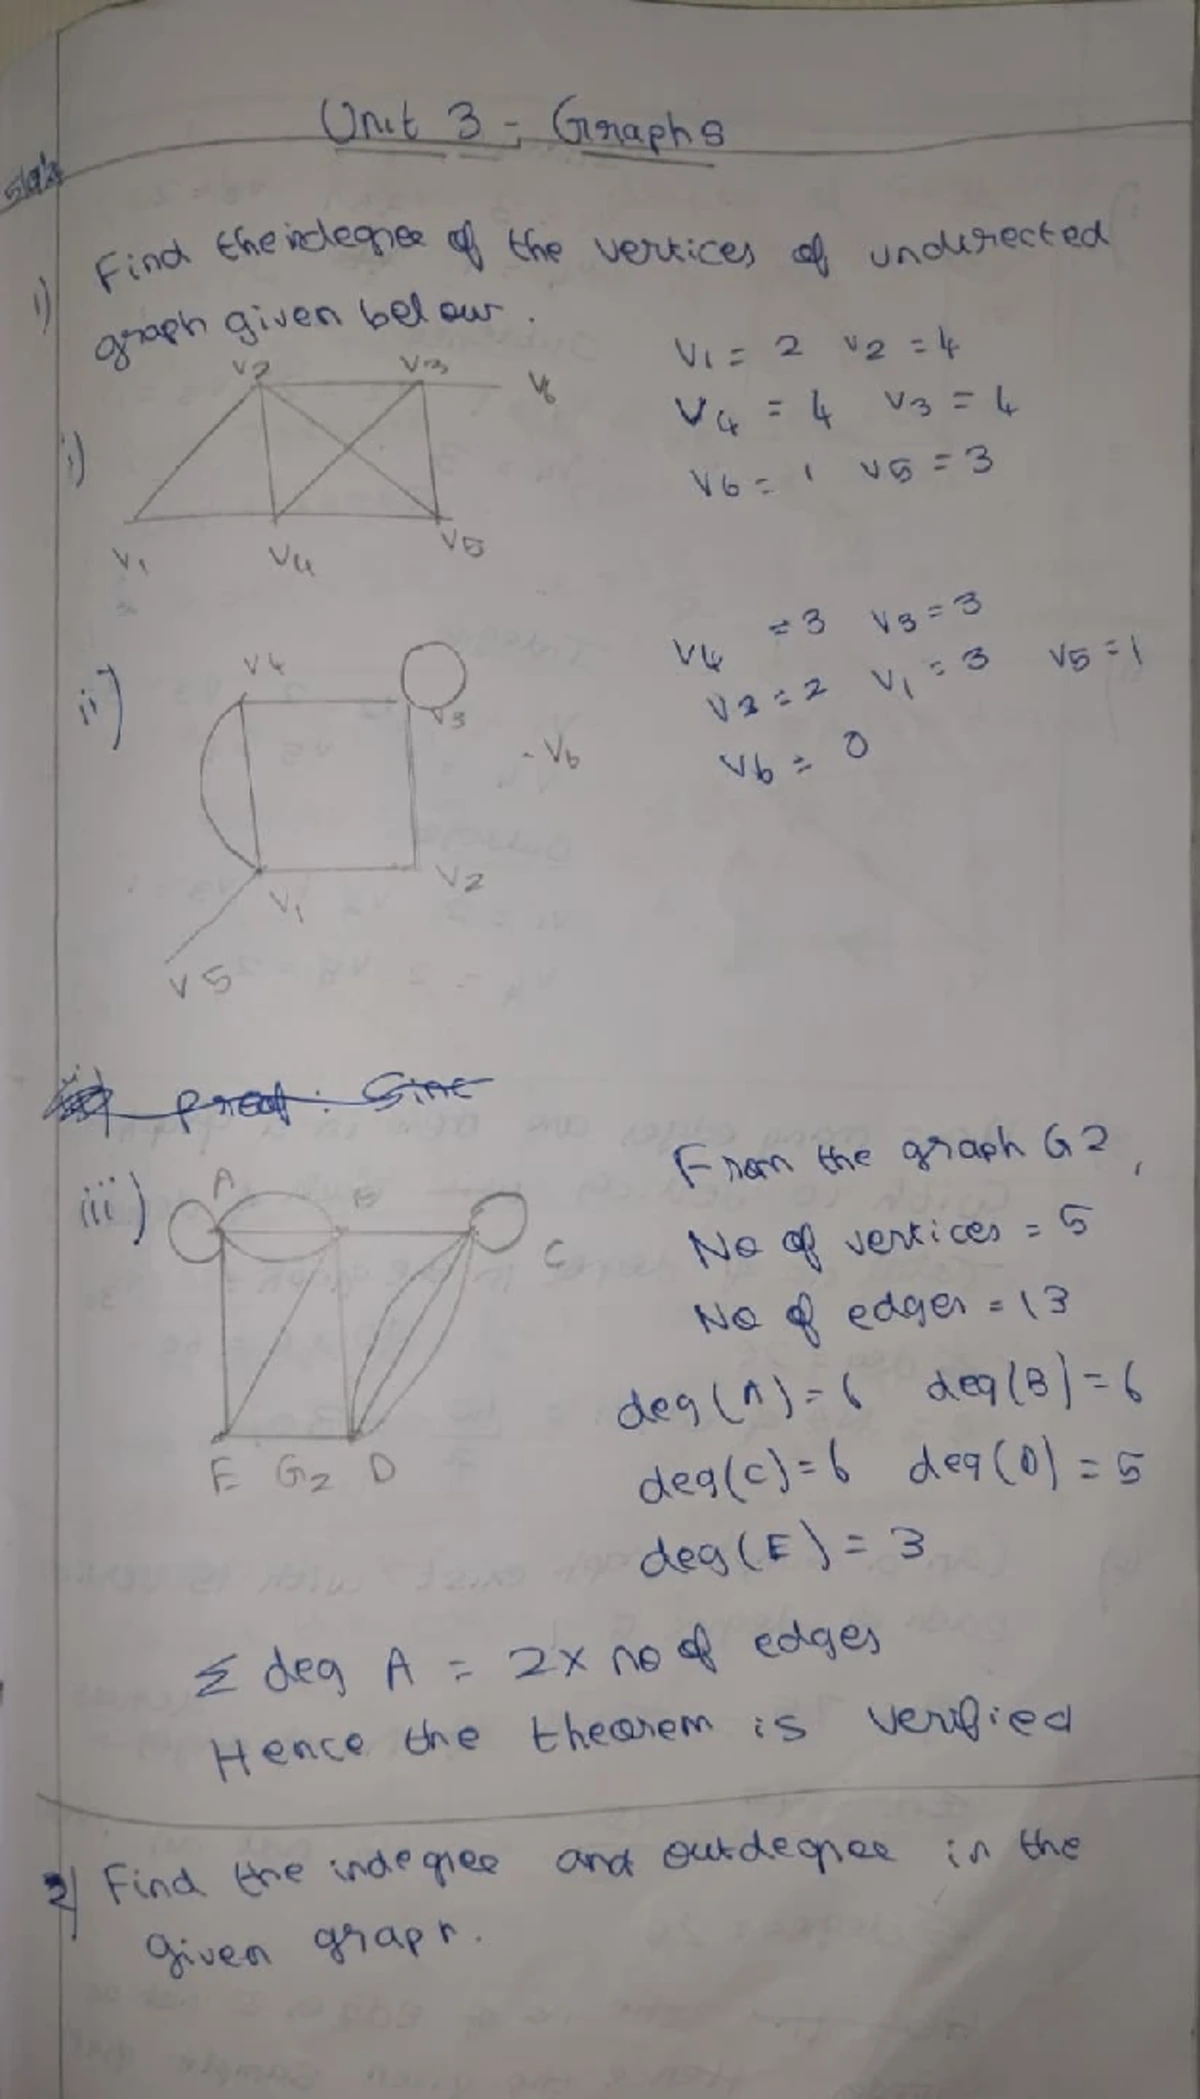 Unit 3 - Graphs
1) Find the indegree of the vertices of undirected
graph given below.
i)
v2 v3 v6
v1 v4 v5
V1 = 2 v2 = 4
V4 = 4 v3 = 4
V6 = 1 v5 = 3
ii)
v4
v3
- V6
v2
v1
v5
V4 = 3 v3 = 3
v2 = 2 v1 = 3 v5 = 1
v6 = 0
proof: Sinc
iii)
A B
C
E G2 D
From the graph G2,
No of vertices = 5
No of edges = 13
deg(A) = 6 deg(B) = 6
deg(C) = 6 deg(D) = 5
deg(E) = 3
Σ deg A = 2x no of edges
Hence the theorem is verified
2) Find the indegree and outdegree in the
given graph.